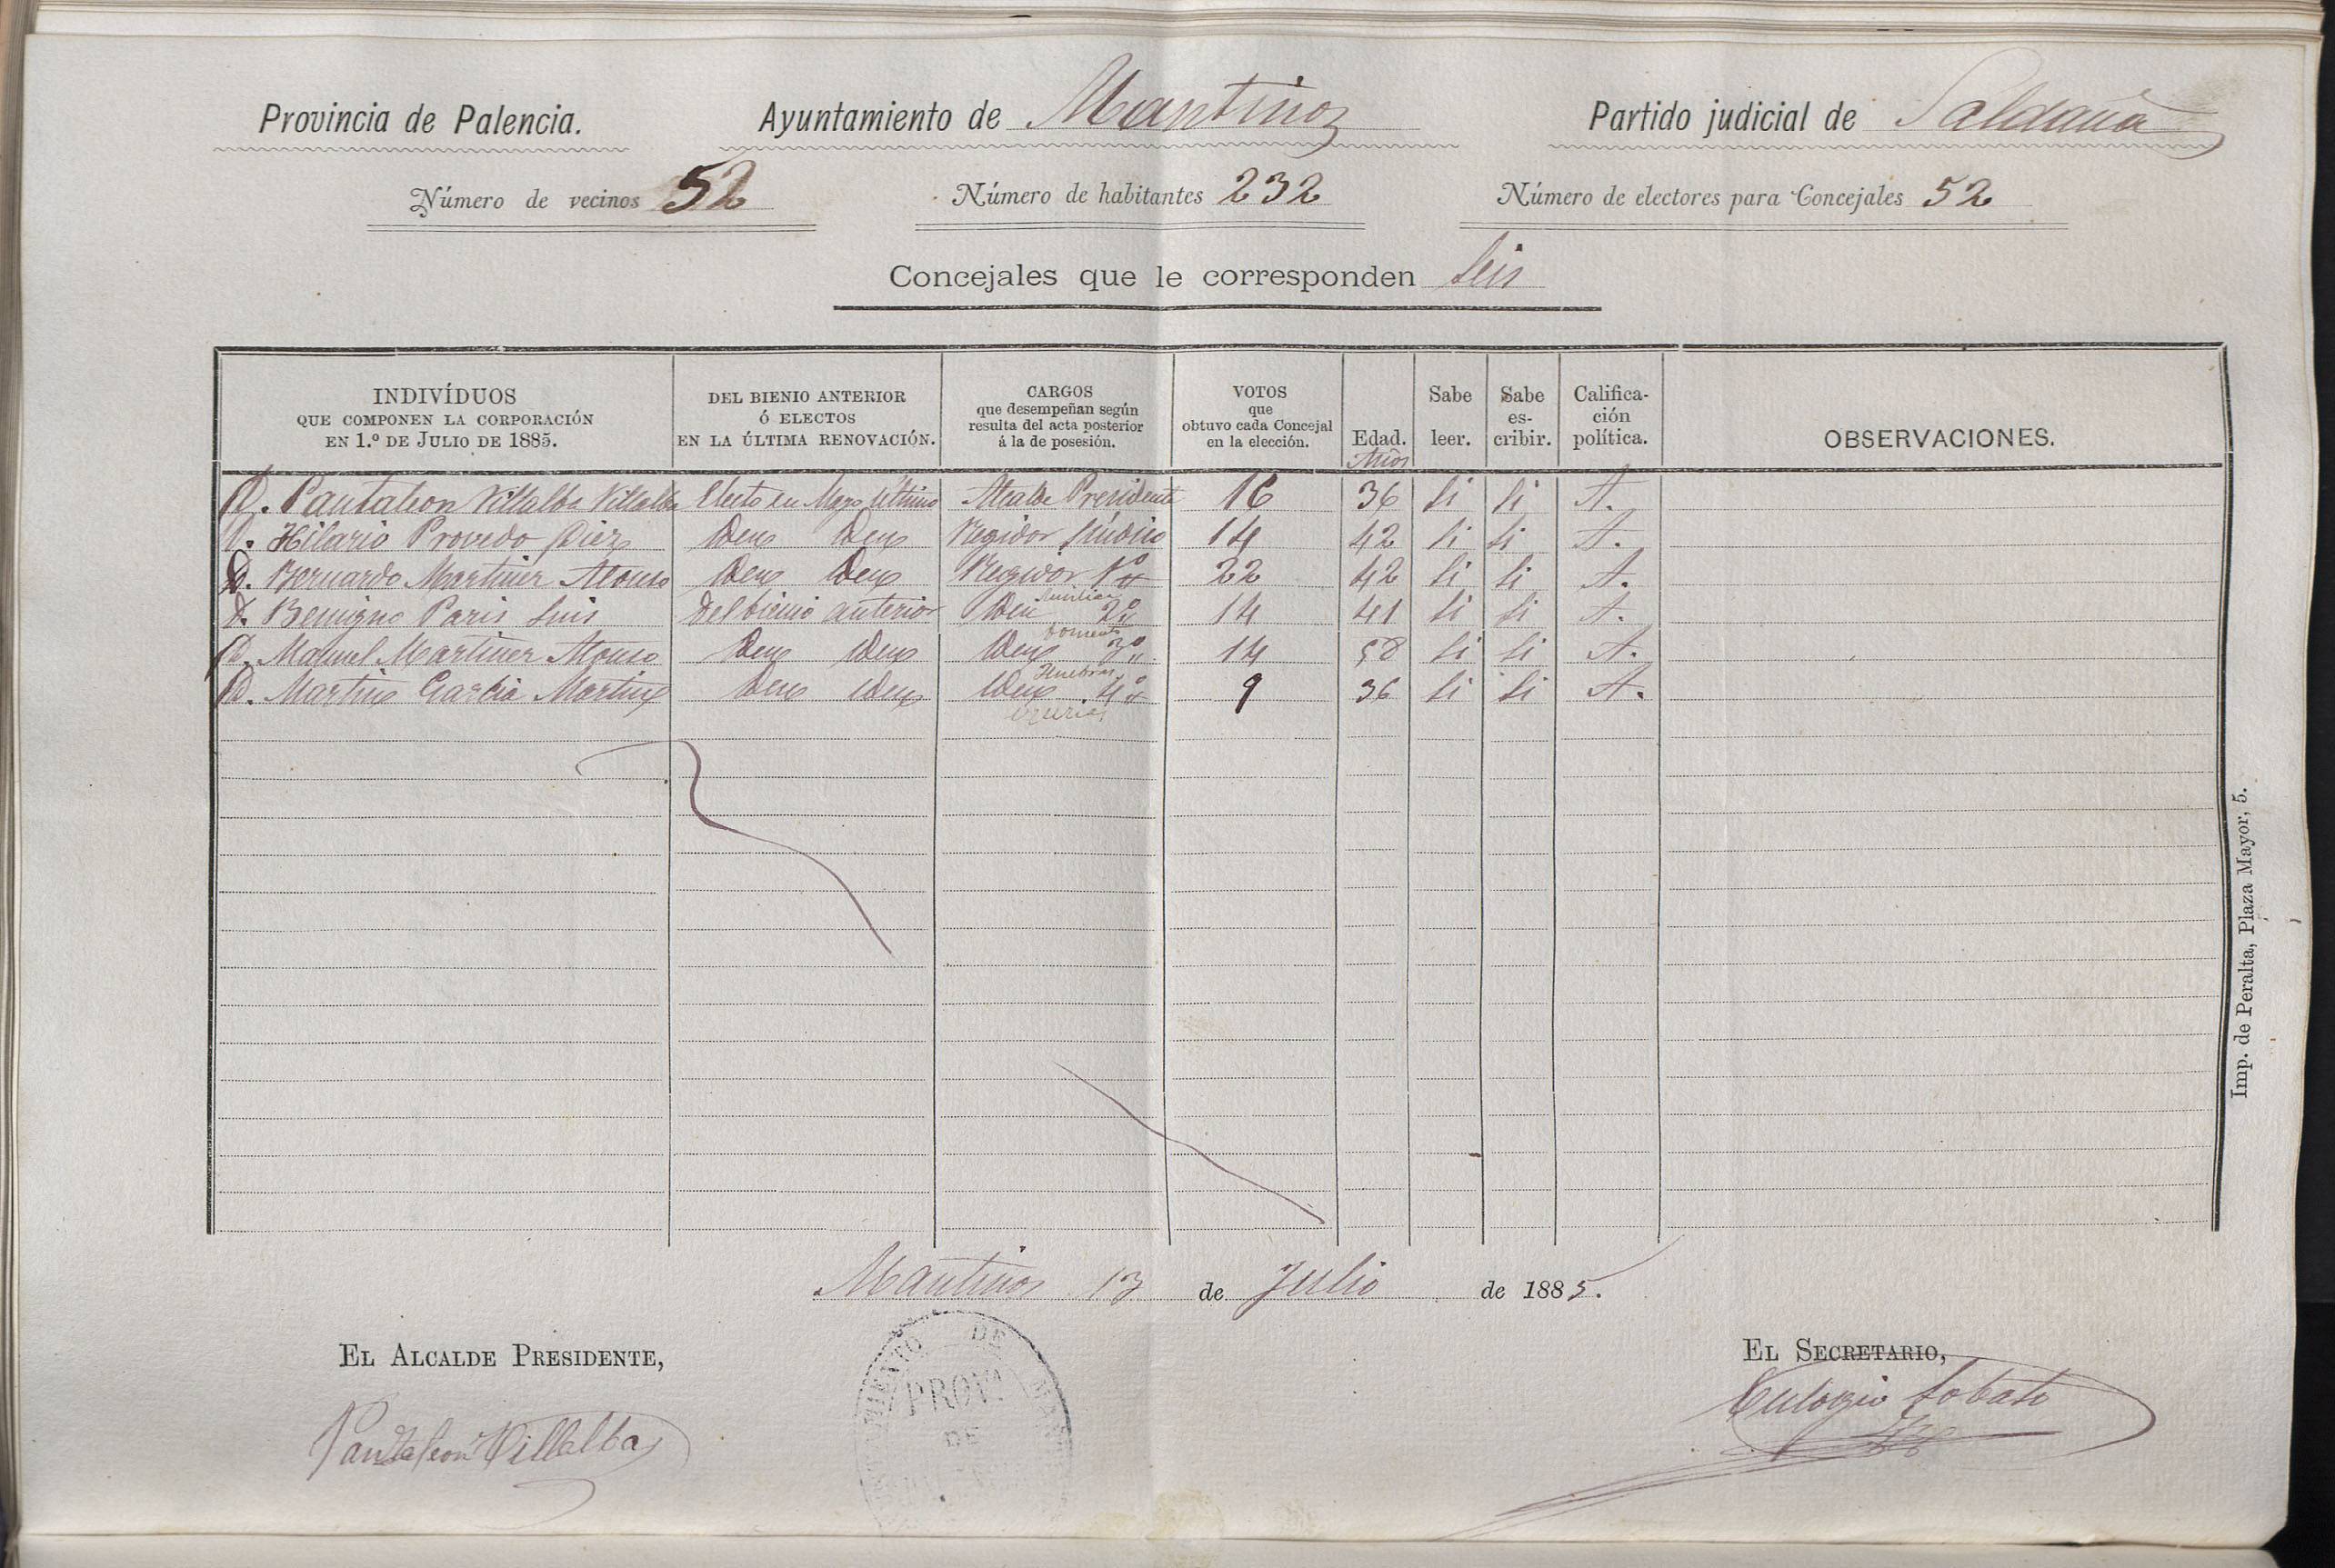 Provincia de Palencia. Ayuntamiento de Mantinos Partido judicial de Saldaña
Número de vecinos 52 Número de habitantes 232 Número de electores para Concejales 52
Concejales que le corresponden Seis
INDIVÍDUOS QUE COMPONEN LA CORPORACIÓN EN 1.º DE JULIO DE 1885. DEL BIENIO ANTERIOR Ó ELECTOS EN LA ÚLTIMA RENOVACIÓN. CARGOS que desempeñan según resulta del acta posterior á la de posesión. VOTOS que obtuvo cada Concejal en la elección. Edad. Sabe leer. Sabe es-cribir. Califica-ción política. OBSERVACIONES.
Años
D. Pantaleon Villalba Villalba Electo en Mayo último Alcalde Presidente 16 36 Si Si A.
D. Hilario Provedo Diez Idem Idem Regidor Síndico 14 42 Si Si A.
D. Bernardo Martinez Alonso Idem Idem Regidor 1º 22 42 Si Si A.
D. Benigno Paris Luis Del bienio anterior Idem 2º 14 41 Si Si A.
D. Manuel Martinez Alonso Idem Idem Idem 3º 14 58 Si Si A.
D. Martin Garcia Martin Idem Idem Idem 4º 9 36 Si Si A.
Mantinos 13 de Julio de 1885.
EL ALCALDE PRESIDENTE, EL SECRETARIO,
Pantaleon Villalba Eulogio Lobato
DE
PROVª
DE
Imp. de Peralta, Plaza Mayor, 5.